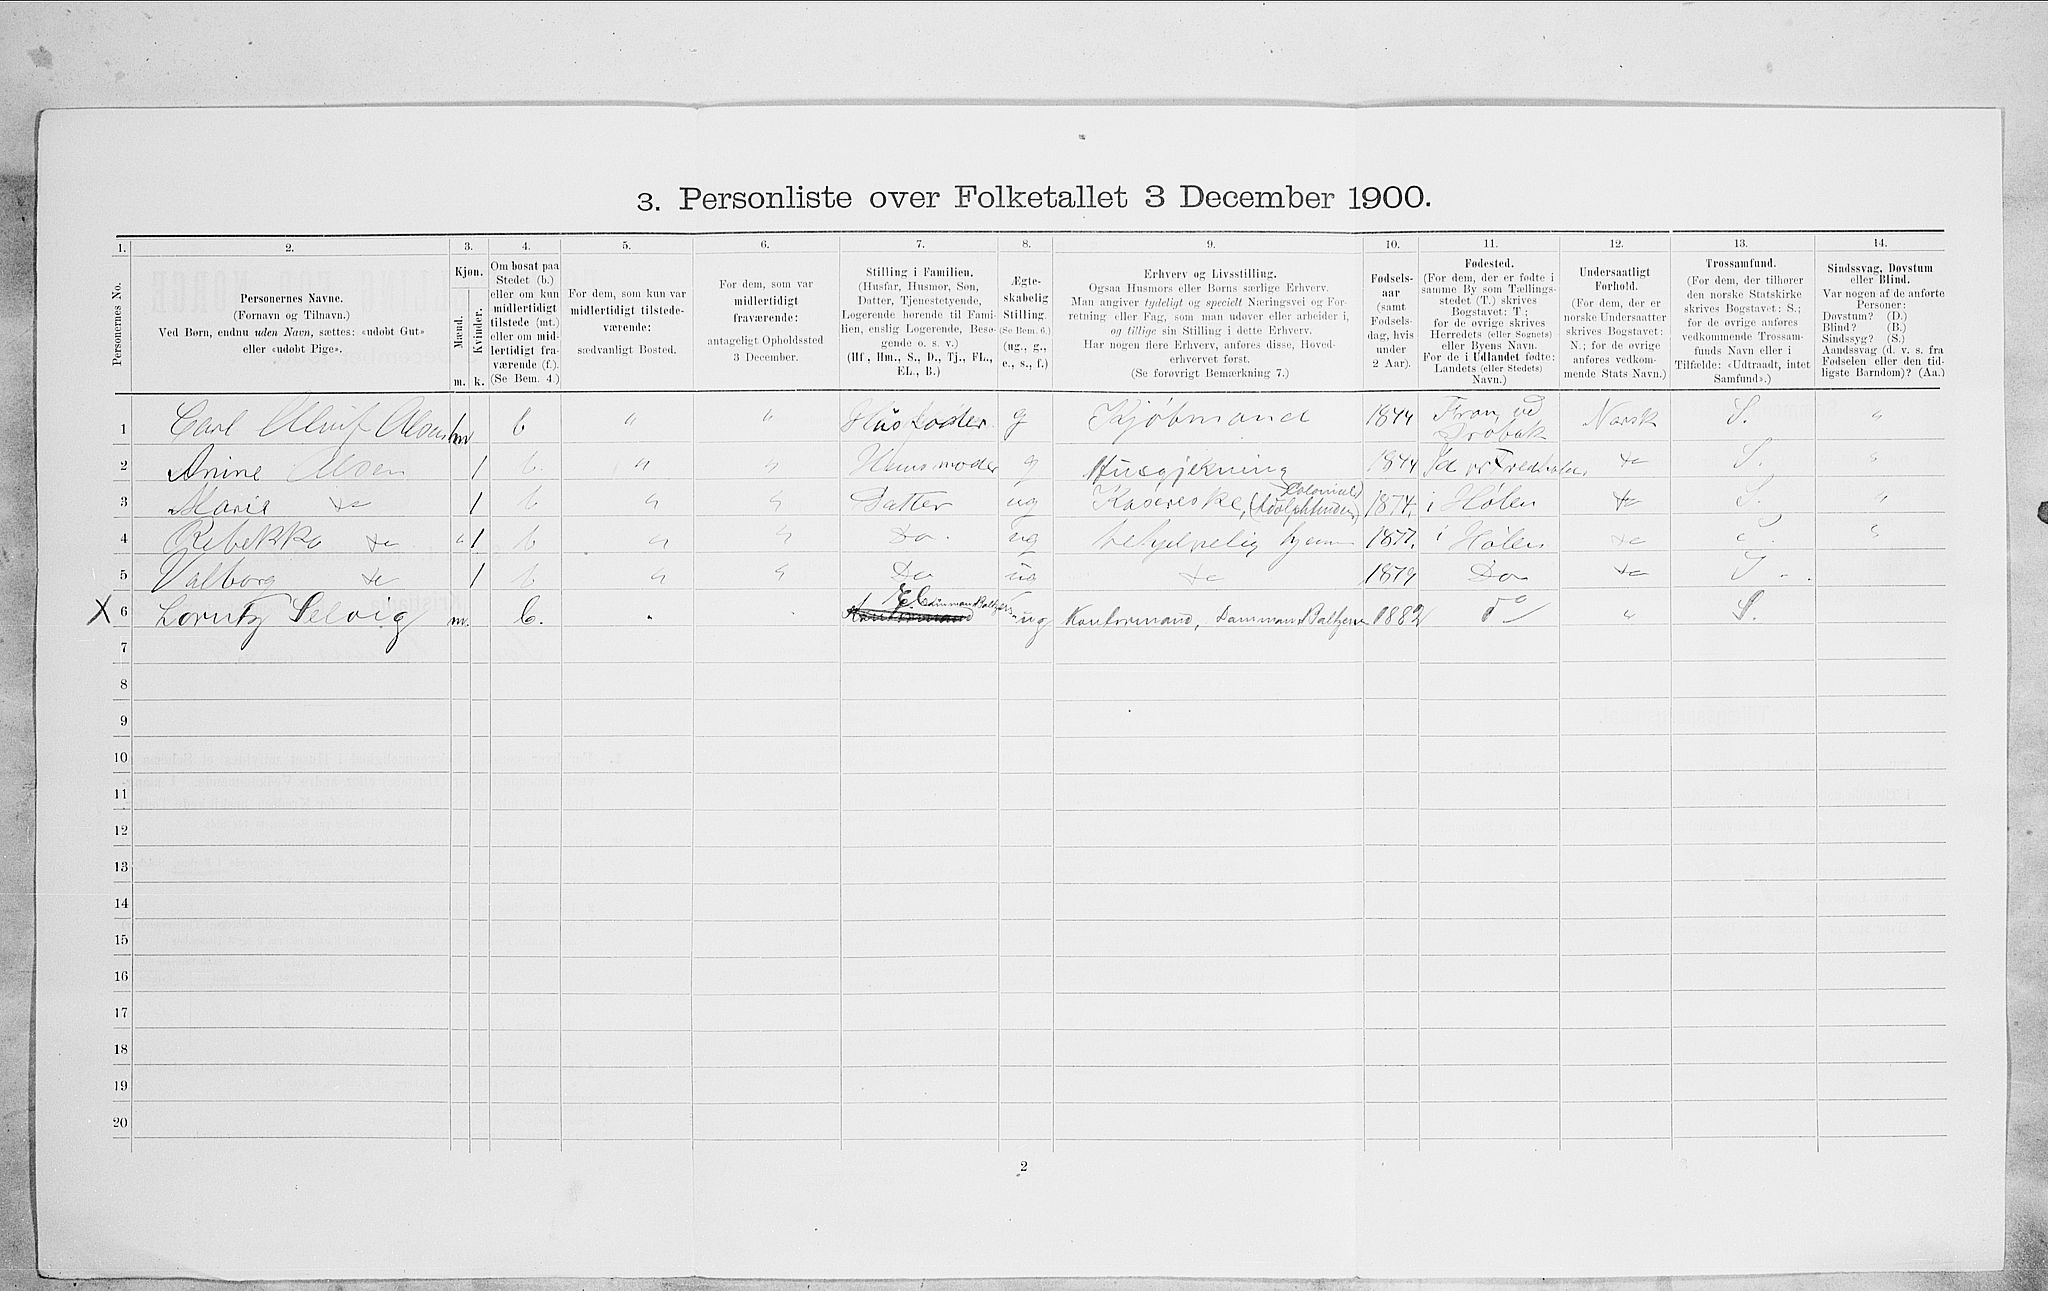 3. Personliste over Folketallet 3 December 1900.
1. 2. 3. 4. 5. 6. 7. 8. 9. 10. 11. 12. 13. 14.
Personernes No.
Personernes Navne.
(Fornavn og Tilnavn.)
Ved Børn, endnu uden Navn, sættes: «udøbt Gut»
eller «udøbt Pige».
Kjøn.
Mænd.
Kvinder.
m. k.
Om bosat paa
Stedet (b.)
eller om kun
midlertidigt
tilstede (mt.)
eller om mid-
lertidigt fra-
værende (f.).
(Se Bem. 4.)
For dem, som kun var
midlertidigt tilstede-
værende:
sædvanligt Bosted.
For dem, som var
midlertidigt
fraværende:
antageligt Opholdssted
3 December.
Stilling i Familien.
(Husfar, Husmor, Søn,
Datter, Tjenestetyende,
Logerende hørende til Fami-
lien, enslig Logerende, Besø-
gende o. s. v.)
(Hf, Hm., S., D., Tj., FL.,
EL., B.)
Ægte-
skabelig
Stilling.
(Se Bem. 6.)
(ug., g.,
e., s., f.)
Erhverv og Livsstilling.
Ogsaa Husmors eller Børns særlige Erhverv.
Man angiver tydeligt og specielt Næringsvei og For-
retning eller Fag, som man udøver eller arbeider i,
og tillige sin Stilling i dette Erhverv.
Har nogen flere Erhverv, anføres disse, Hoved-
erhvervet først.
(Se forøvrigt Bemærkning 7.)
Fødsels-
aar
(samt
Fødsels-
dag, hvis
under
2 Aar).
Fødested.
(For dem, der er fødte i
samme By som Tællings-
stedet (T.) skrives
Bogstavet: T.;
for de øvrige skrives
Herredets (eller Sognets)
eller Byens Navn.
For de i Udlandet fødte:
Landets (eller Stedets)
Navn.)
Undersaatligt
Forhold.
(For dem, der er
norske Undersaatter
skrives Bogstavet:
N.; for de øvrige
anføres vedkom-
mende Stats Navn.)
Trossamfund.
(For dem, der tilhører
den norske Statskirke
skrives Bogstavet: S.;
for de øvrige anføres
vedkommende Trossam-
funds Navn eller i
Tilfælde: «Udtraadt, intet
Samfund».)
Sindssvag, Døvstum
eller Blind.
Var nogen af de anførte
Personer:
Døvstum? (D.)
Blind? (B.)
Sindssyg? (S.)
Aandssvag (d. v. s. fra
Fødselen eller den tid-
ligste Barndom)? (Aa.)
1 Carl m b " " Husfader g Kjøbmand 1844 Drøbak Norsk S. "
2 Anine Olsen 1 b. " " Husmoder g 1844 do S. "
3 Marie do 1 b " " Datter ug 1874. i Hølen do S. "
4 Rebekka do 1 b " " Do. ug behjelpelig hjem 1877. i Hølen do S. "
5 Valborg do 1 b " " Do ug do 1879 Do do S.
X 6 Lorentz Selvig m. b. EL ug 1882 do " S.
7
8
9
10
11
12
13
14
15
16
17
18
19
20
2